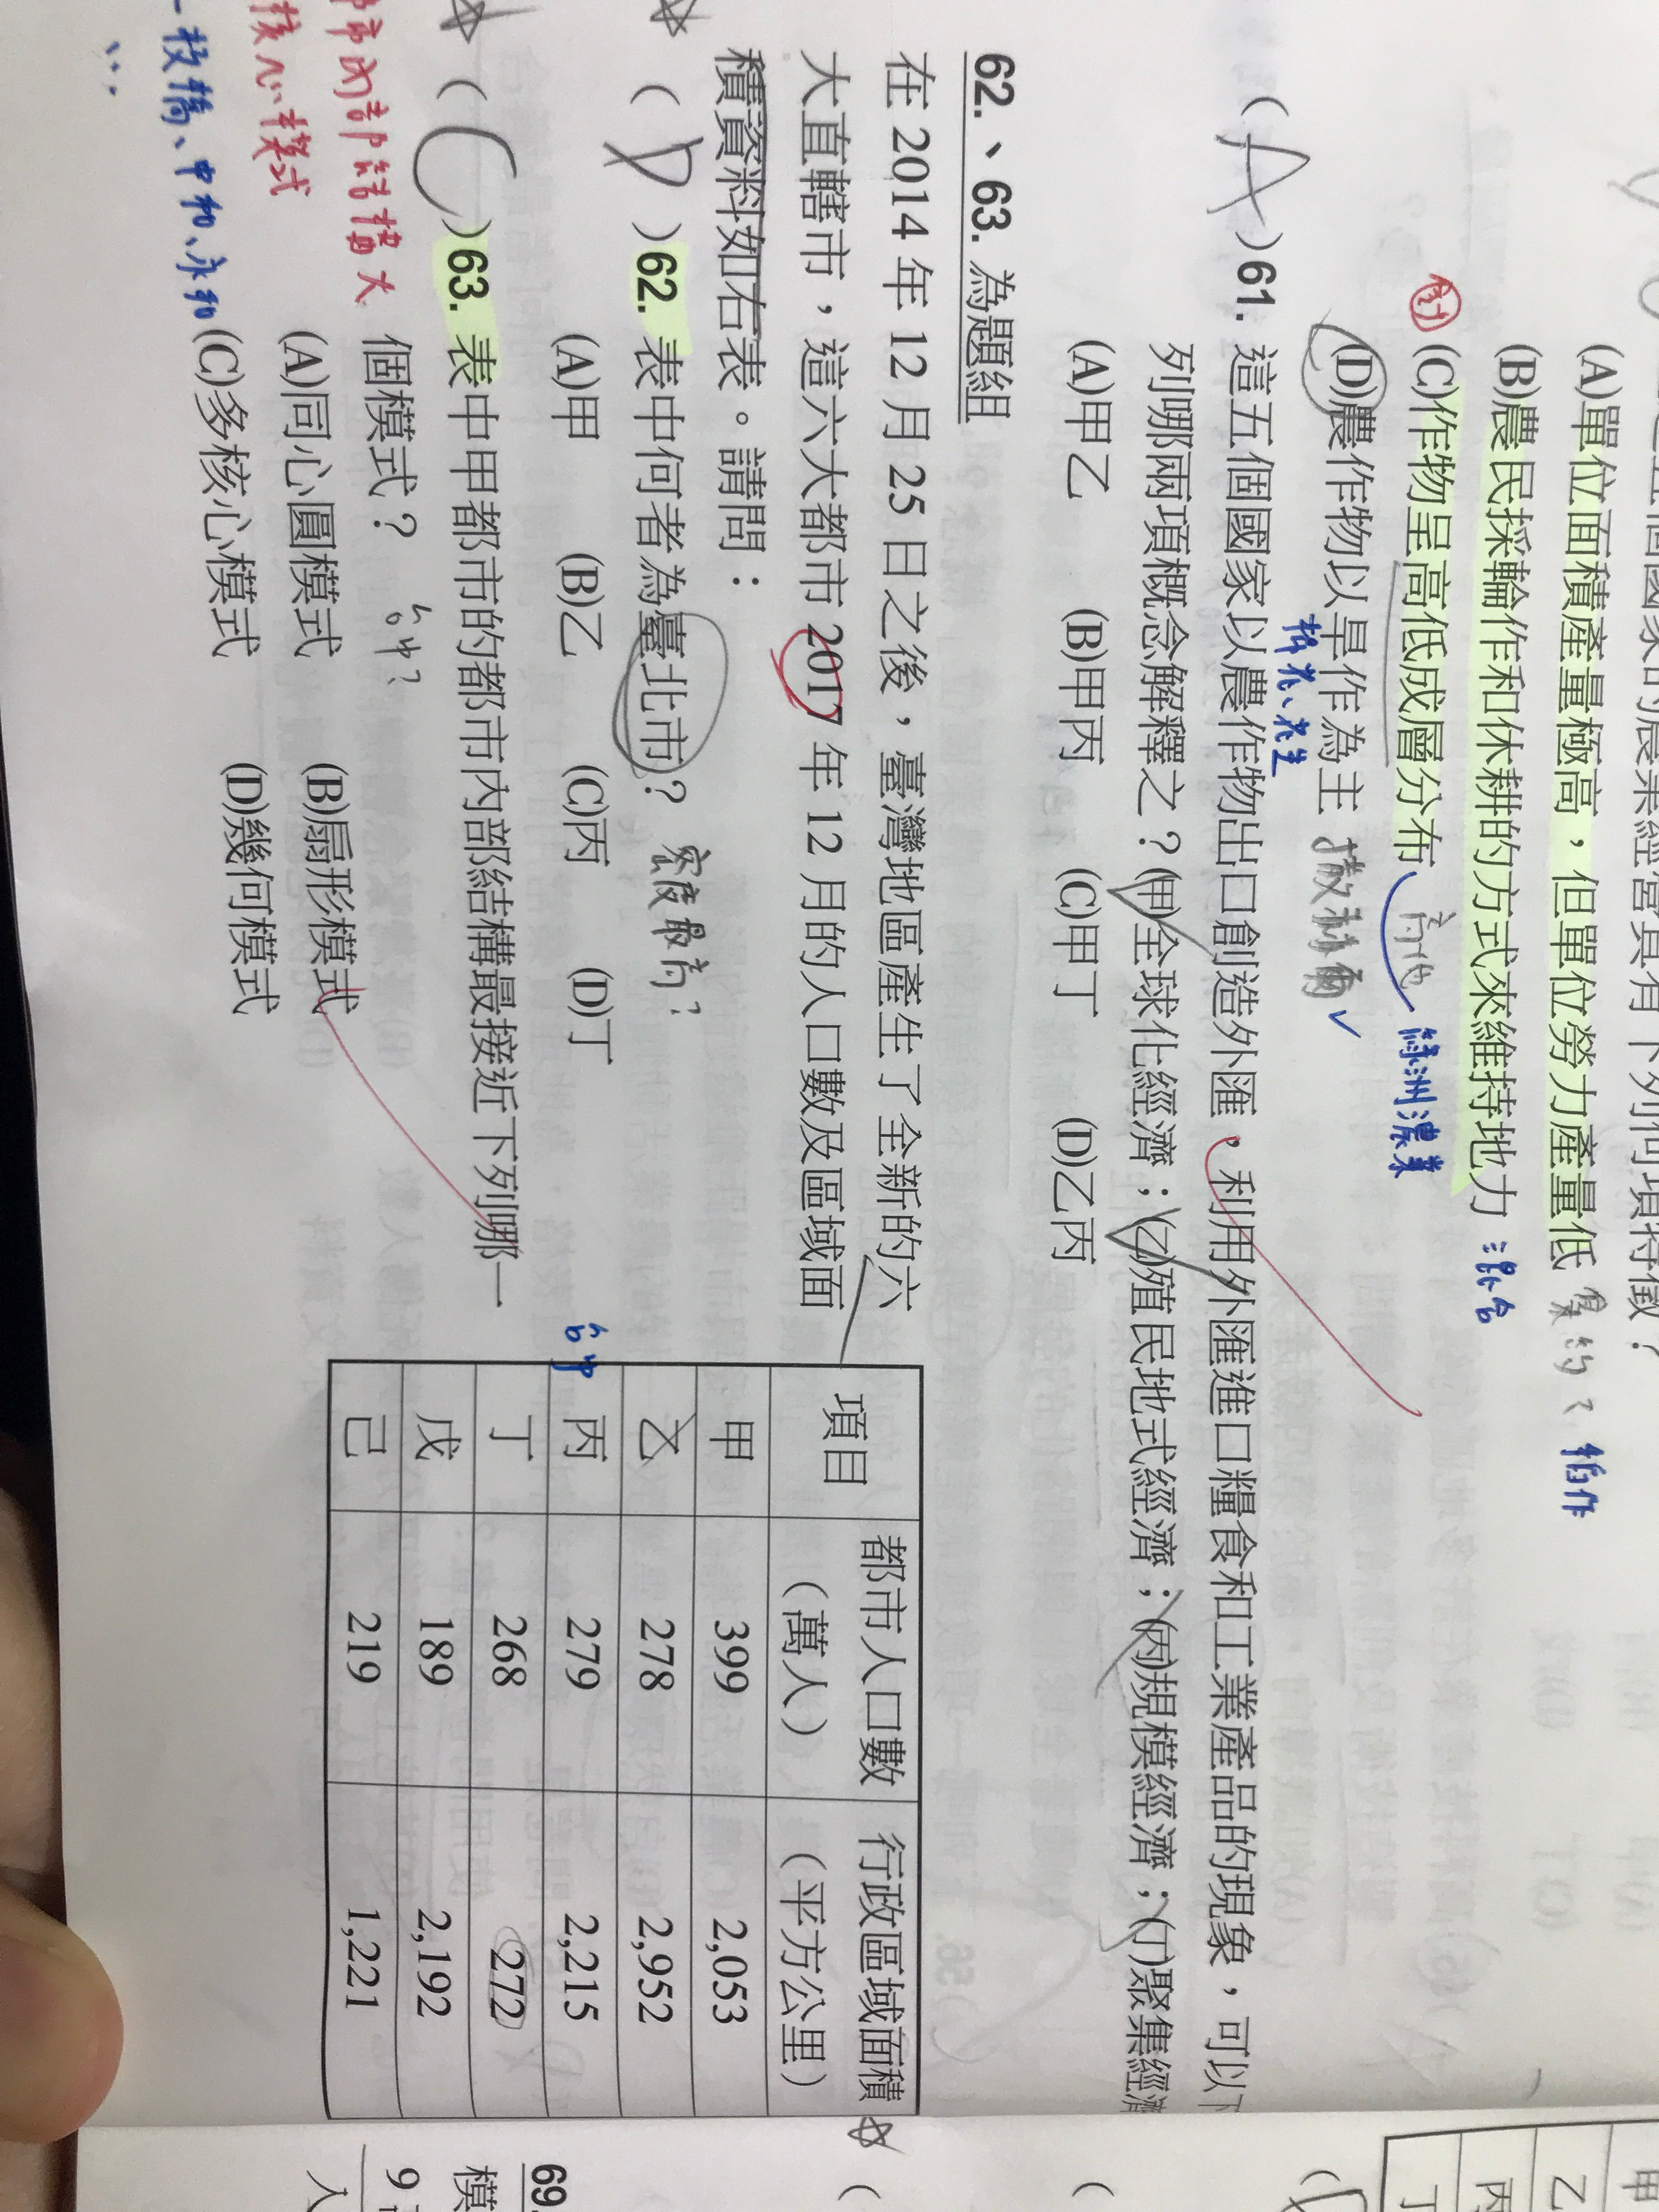 (A)單位面積產量極高，但單位勞力產量低
(B)農民採輪作和休耕的方式來維持地力 混合
(C)作物呈高低成層分布 高地 綠洲農業
(D)農作物以旱作為主
棉花、花生
(A)61. 這五個國家以農作物出口創造外匯，利用外匯進口糧食和工業產品的現象，可以下
列哪兩項概念解釋之？(甲)全球化經濟；(乙)殖民地式經濟；(丙)規模經濟；(丁)聚集經濟
(A)甲乙 (B)甲丙 (C)甲丁 (D)乙丙
62.、63. 為題組
在 2014 年 12 月 25 日之後，臺灣地區產生了全新的六
大直轄市，這六大都市 2017 年 12 月的人口數及區域面
積資料如右表。請問：
(D)62. 表中何者為臺北市？ 密度最高？
(A)甲 (B)乙 (C)丙 (D)丁
(C)63. 表中甲都市的都市內部結構最接近下列哪一
個模式？ 台中？
(A)同心圓模式 (B)扇形模式
(C)多核心模式 (D)幾何模式
核心模式
板橋、中和、永和
項目 都市人口數（萬人） 行政區域面積（平方公里）
甲 399 2,053
乙 278 2,952
台中 丙 279 2,215
丁 268 272
戊 189 2,192
己 219 1,221
69.
模
9
入
甲
乙
丙
丁